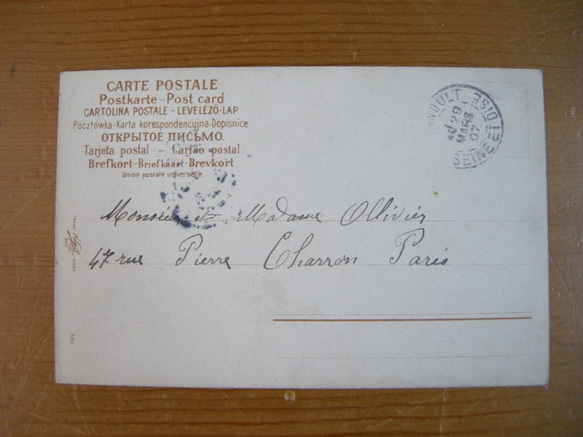 CARTE POSTALE
Postkarte - Post card
CARTOLINA POSTALE - LEVELEZO-LAP
Pocztówka - Karta korespondencyjna - Dopisnice
ОТКРЫТОЕ ПИСЬМО.
Tarjeta postal - Cartão postal
Brefkort - Briefkaart - Brevkort
Union postale universelle.
29
MARS
07
SEINE ET OISE
Monsieur et Madame Ollivier
47 rue Pierre Charron Paris